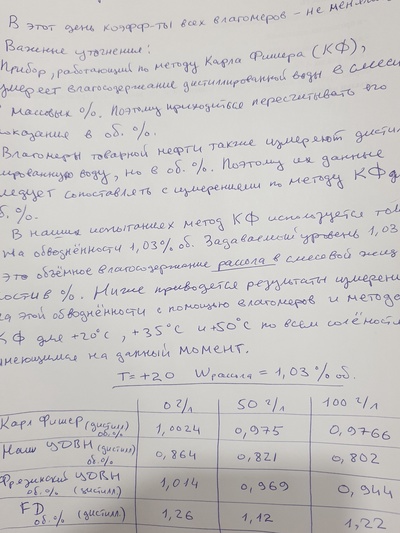 В этот день коэфф-ты всех влагомеров - не менялись
Важные уточнения:
Прибор, работающий по методу Карла Фишера (КФ),
измеряет влагосодержание дистиллированной воды в смеси
в массовых %. Поэтому приходиться пересчитывать его
показание в об. %.
Влагомеры товарной нефти также измеряют дистил-
лированную воду, но в об. %. Поэтому их данные
следует сопоставлять с измерениями по методу КФ
об. %.
В наших испытаниях метод КФ используется
на обводнённости 1,03% об. Задаваемый уровень 1,03
это объёмное влагосодержание рассола в смесевой жид
кости в %. Ниже приводятся результаты измерени
на этой обводнённости с помощью влагомеров и метода
КФ для +20°С, +35°С и +50°С по всем солёностя
имеющимся на данный момент.
T = +20 Wрассола = 1,03 % об.
0 г/л 50 г/л 100 г/л
Карл Фишер (дистилл) об.% 1,0024 0,975 0,9766
Наш ЦОВН (дистилл) об.% 0,864 0,821 0,802
ЦОВН об.% (дистилл) 1,014 0,969 0,944
FD об.% (дистилл.) 1,26 1,12 1,22